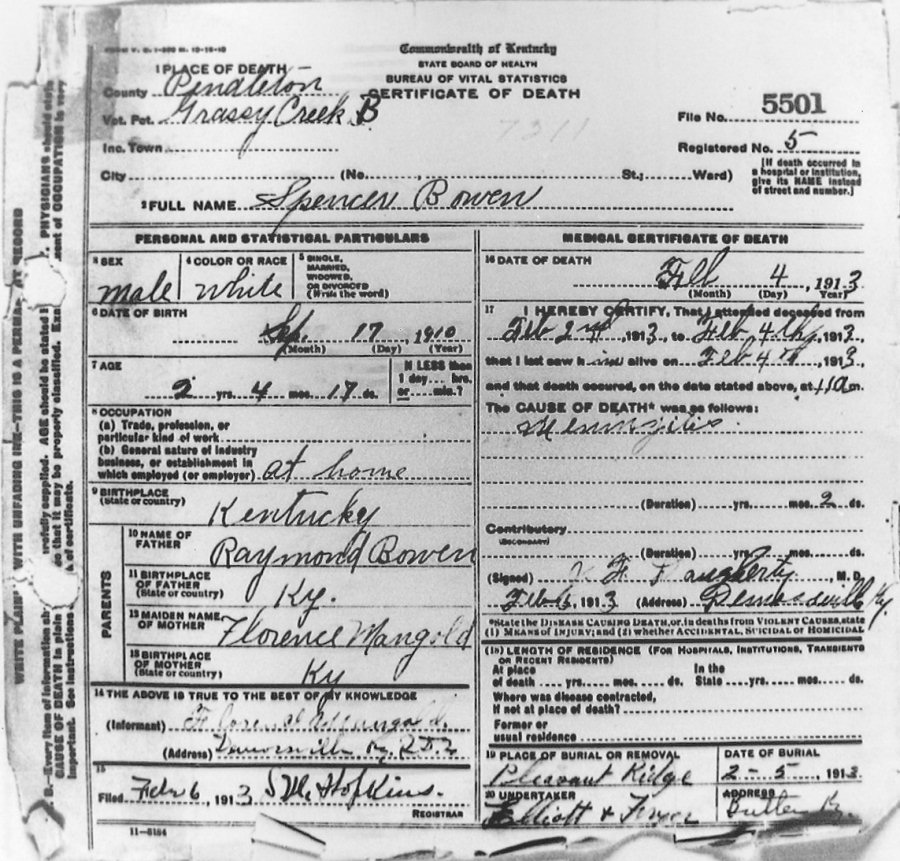 FORM V. S. 1-200 M. 10-19-10
Commonwealth of Kentucky
STATE BOARD OF HEALTH
BUREAU OF VITAL STATISTICS
CERTIFICATE OF DEATH
1 PLACE OF DEATH
County Pendleton
Vot. Pct. Grassy Creek B
File No. 5501
7311
Inc. Town
Registered No. 5
City (No. , St.; Ward)
[If death occurred in a hospital or institution, give its NAME instead of street and number.]
2 FULL NAME Spencer Bowen
PERSONAL AND STATISTICAL PARTICULARS
3 SEX
male
4 COLOR OR RACE
white
5 SINGLE, MARRIED, WIDOWED, OR DIVORCED
(Write the word)
6 DATE OF BIRTH
Sep. 17, 1910
(Month) (Day) (Year)
7 AGE
2 yrs. 4 mos. 17 ds.
If LESS than
1 day... hrs.
or... min.?
8 OCCUPATION
(a) Trade, profession, or
particular kind of work
(b) General nature of industry
business, or establishment in
which employed (or employer) at home
9 BIRTHPLACE
(State or country) Kentucky
PARENTS
10 NAME OF
FATHER Raymond Bowen
11 BIRTHPLACE
OF FATHER
(State or country) Ky.
12 MAIDEN NAME
OF MOTHER Florence Mangold
13 BIRTHPLACE
OF MOTHER
(State or country) Ky
14 THE ABOVE IS TRUE TO THE BEST OF MY KNOWLEDGE
(Informant)
(Address) Ky
15
Filed Feb 6, 1913 Hopkins.
REGISTRAR
11-6184
MEDICAL CERTIFICATE OF DEATH
16 DATE OF DEATH
Feb 4, 1913
(Month) (Day) Year)
17 I HEREBY CERTIFY, That I attended deceased from
Feb 2nd, 1913, to Feb 4th, 1913,
that I last saw h im alive on Feb 4th, 1913,
and that death occured, on the date stated above, at m.
The CAUSE OF DEATH* was as follows:
Meningitis.
(Duration) yrs. mos. 2 ds.
Contributory
(SECONDARY)
(Duration) yrs. mos. ds.
(Signed) Daugherty, M. D.
Feb 6, 1913 (Address) Demossville Ky.
*State the DISEASE CAUSING DEATH, or, in deaths from VIOLENT CAUSES, state
(1) MEANS of INJURY; and (2) whether ACCIDENTAL, SUICIDAL or HOMICIDAL
(18) LENGTH OF RESIDENCE (FOR HOSPITALS, INSTITUTIONS, TRANSIENTS
OR RECENT RESIDENTS)
At place In the
of death yrs. mos. ds. State yrs. mos. ds.
Where was disease contracted,
If not at place of death?
Former or
usual residence
19 PLACE OF BURIAL OR REMOVAL
Pleasant Ridge
DATE OF BURIAL
2-5, 1913
20 UNDERTAKER
Elliott &
ADDRESS
Butler Ky.
WRITE PLAINLY WITH UNFADING INK—THIS IS A PERMA RECORD
B.—Every item of information sh refully supplied. AGE should be stated PHYSICIANS should state
CAUSE OF DEATH in plain so that it may be properly classified. Exa ment of OCCUPATION is very
important. See instructions of certificate.